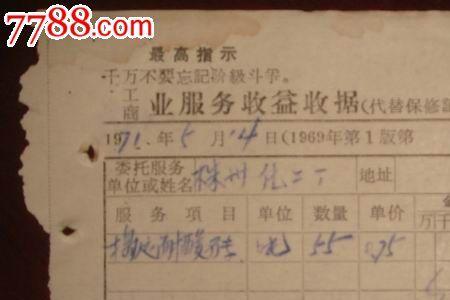 7788.com
最高指示
千万不要忘记阶级斗争。
工商业服务收益收据(代替保修
1971.年5月14日(1969年第1版第
委托服务单位或姓名 株州化二丁 地址
服务項目 单位 数量 单价
万千
耐酸 55 0.75